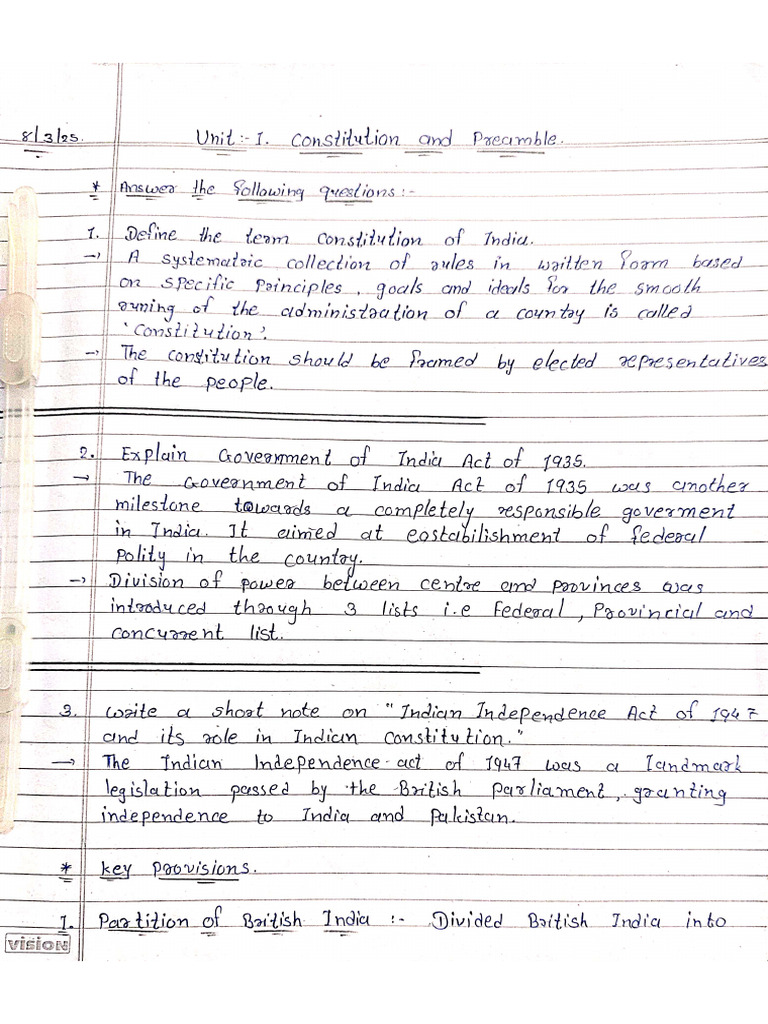 8/3/25. Unit :- I. Constitution and Preamble.
* Answer the following questions :-
1. Define the term constitution of India.
→ A systematric collection of rules in written form based
on specific principles, goals and ideals for the smooth
runing of the administration of a country is called
'Constitution'.
→ The constitution should be framed by elected representatives
of the people.
2. Explain Government of India Act of 1935.
→ The Government of India Act of 1935 was another
milestone towards a completely responsible goverment
in India. It aimed at eastabilishment of federal
polity in the country.
→ Division of power between centre and provinces was
introduced through 3 lists i.e Federal, Provincial and
concurrent list.
3. Write a short note on "Indian Independence Act of 1947
and its role in Indian Constitution."
→ The Indian Independence act of 1947 was a landmark
legislation passed by the British Parliament, granting
independence to India and Pakistan.
* Key Provisions.
1. Partition of British India :- Divided British India into
VISION